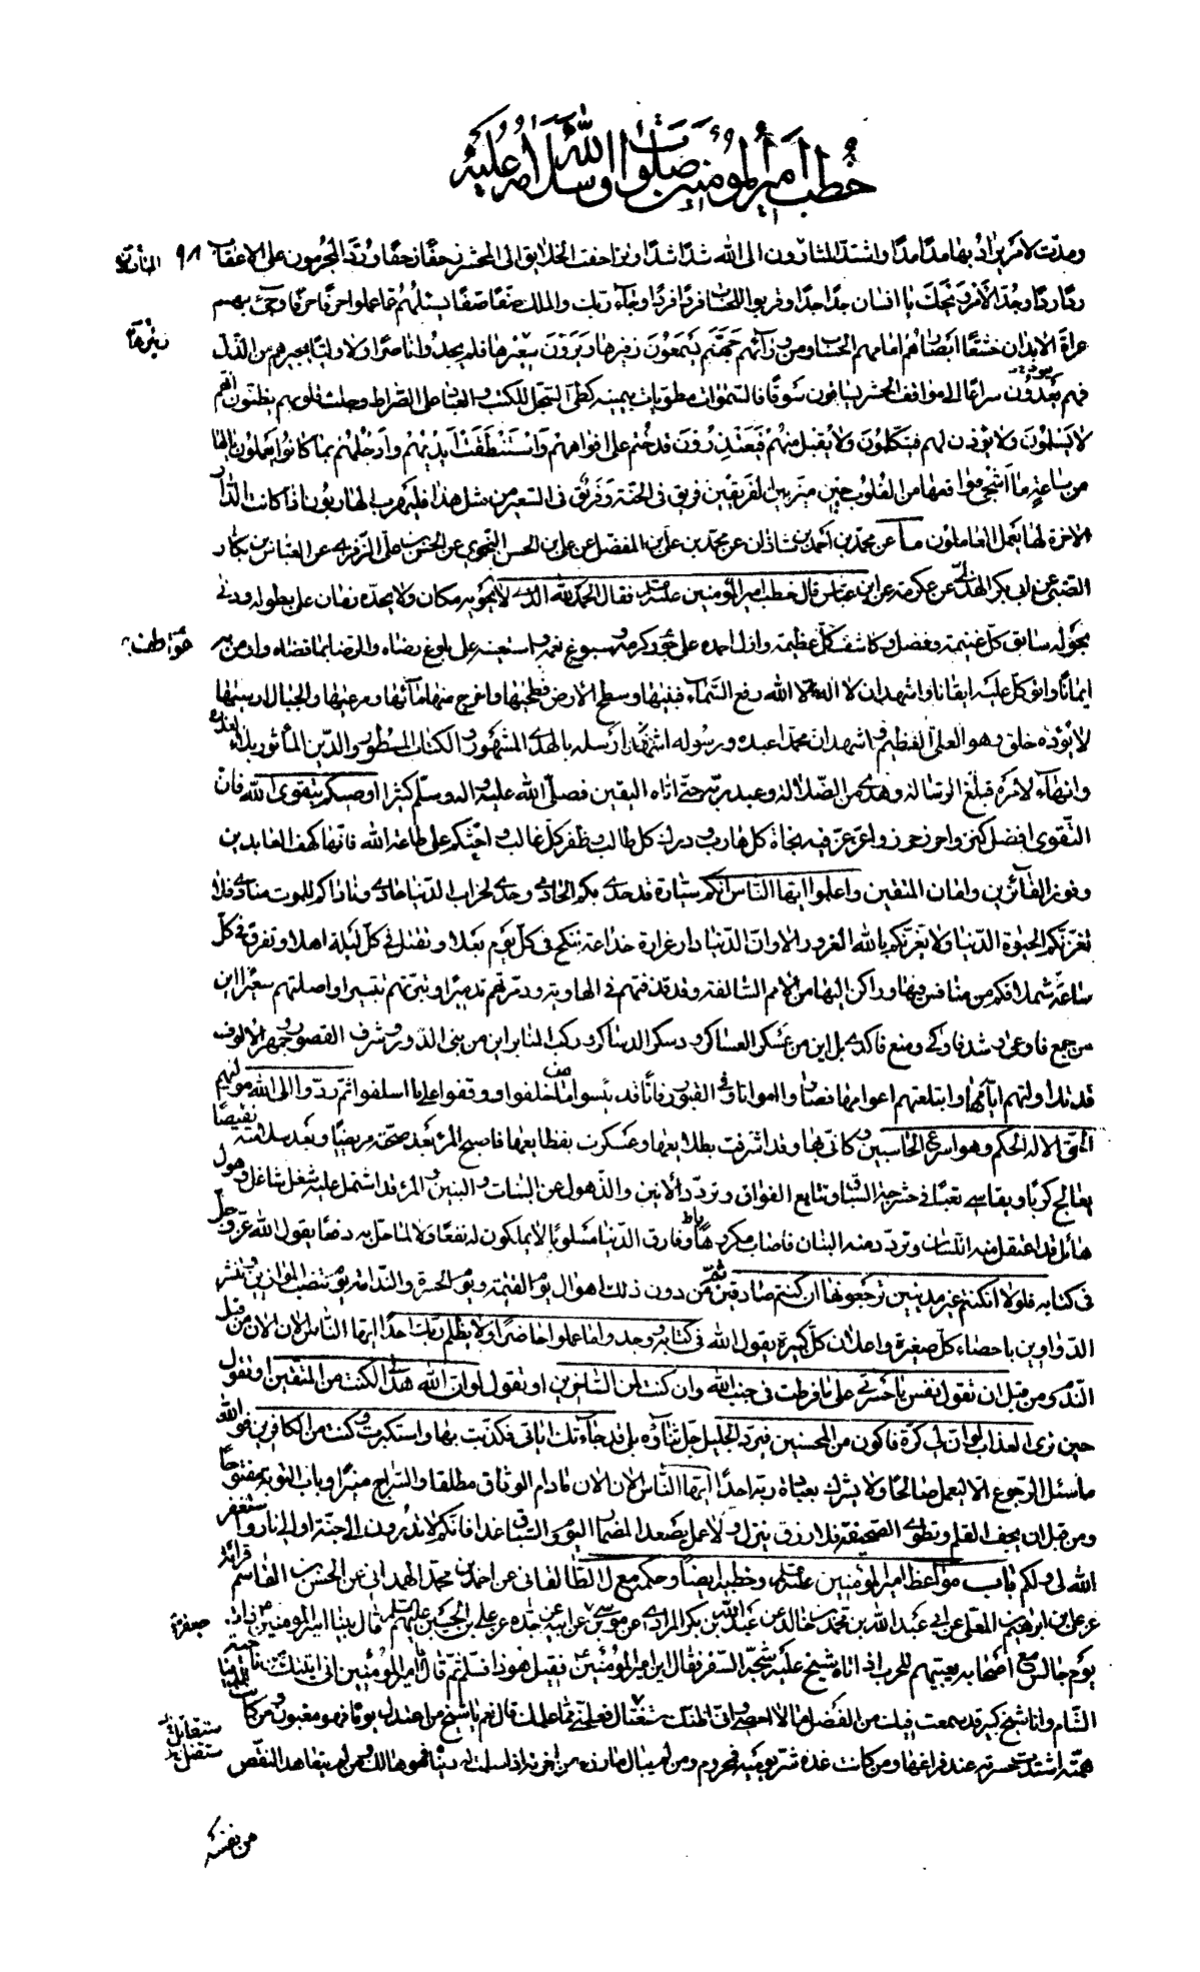 خطب أمير المؤمنين صلوات الله وسلامه عليه
ومدّت لامر يراد بها مدّا مدّا واشتدّ المثارون الى الله شدّا شدّا وتزاحفت الخلايق الى المحشر زحفًا زحفًا وردّ المجرمون على الاعقاب ٩٨
ردّا ردّا وجدّ الامر ويحك يا انسان جدّا جدّا وقربوا للحساب فردًا فردًا وجاء ربك والملك صفّا صفّا يسئلهم عما عملوا حرفًا حرفًا وجئ بهم
عراة الابدان خشعًا ابصارهم امامهم الحساب ومن ورآئهم جهنم يسمعون زفيرها ويرون سعيرها فلم يجدوا ناصرًا ولا وليّا يجيرهم من الذلّ
فهم يعدون سراعًا الى مواقف الحشر يساقون سوقًا فالسموات مطويات بيمينه كطيّ السجل للكتب والعباد على الصراط وجلت قلوبهم يظنون انهم
لا يسلمون ولا يؤذن لهم فيتكلمون ولا يقبل منهم فيعتذرون قد ختم على افواههم واستنطقت ايديهم وارجلهم بما كانوا يعملون يا لها
من ساعة ما اشجى مواقعها من القلوب حين ميّز بين الفريقين فريق في الجنة وفريق في السعير من مثل هذا فليهرب الهاربون اذا كانت الدار
الاخرة لها يعمل العاملون ما عن محمد بن احمد بن شاذان عن محمد بن علي بن المفضل عن علي بن الحسن النحوي عن الحسن بن علي الزفري عن العباس بن بكار
الضبي عن ابي بكر الهذلي عن عكرمة عن ابن عباس قال خطب امير المؤمنين عليه السلم فقال الحمد لله الذي لا يحويه مكان ولا يحدّه زمان علا بطوله ودنى
بحوله سابق كلّ غنيمة وفضل وكاشف كلّ عظيمة وازل احمده على جود كرمه وسبوغ نعمه واستعينه على بلوغ رضاه والرضا بما قضاه واومن به
ايمانًا واتوكل عليه ايقانا واشهد ان لا اله الا الله رفع السّمآء فبنيها وسطح الارض فطحيها واخرج منها مآئها ومرعيها والجبال ارسيها
لا يؤده خلق وهو العلي العظيم واشهد ان محمدا عبده ورسوله ارسله بالهدى المشهور والكتاب المسطور والدّين المأثور ابلاء لعذره
وانهآء لامره فبلغ الرسالة وهدى من الضّلالة وعبد ربّه حتى اتاه اليقين فصلّى الله عليه وآله وسلّم كثيرًا اوصيكم بتقوى الله فانّ
التّقوى افضل كنز واحرز حرز واعزّ عزّ فيه نجاة كل هارب ودرك كل طالب وظفر كلّ غالب واحثكم على طاعة الله فانّها كهف العابدين
وفوز الفآئزين وامان المتقين واعلموا ايها النّاس انكم سيّارة قد حدى بكم الحادي وحدى لخراب الدّنيا حادي وناداكم للموت منادي فلا
تغرّنكم الحيوة الدّنيا ولا يغرّنكم بالله الغرور الا وانّ الدّنيا دار غرارة خداعة تنكح في كلّ يوم بعلا وتقتل في كلّ ليلة اهلا وتفرق في كلّ
ساعة شملا فكم من منافس فيها وراكن اليها من الامم السّالفة وقد قذفتهم في الهاوية ودمّرتهم تدميرًا وتبرّتهم تتبيرا واصلتهم سعيرًا اين
من جمع فاوعى وشد فاوكى ومنع فاكدى بل اين من عسكر العساكر ودسكر الدساكر وركب المنابر اين من بنى الدّور وشرف القصور وجمهر الالوف
قد تداولتهم ايامها وابتلعتهم اعوامها فصاروا امواتا وفي القبور رفاتًا قد يئسوا ما خلفوا ووقفوا على ما اسلفوا ثم ردّوا الى الله موليهم
الحق الا له الحكم وهو اسرع الحاسبين وكاني بها وقد اشرفت بطلايعها وعسكرت بفظايعها فاصبح المرء بعد صحته مريضًا وبعد سلامته نقيصًا
يعالج كربًا ويقاسي تعبًا في حشرجة السّباق وتتابع الفواق وتردّد الانين والذهول عن البنات والبنين والمرء قد اشتمل عليه شغل شاغل وهول
هائل قد اعتقل منه اللسان وتردّد منه البنان فاصاب مكروهًا وفارق الدّنيا مسلوبًا لا يملكون له نفعًا ولا لما حلّ به دفعًا يقول الله عزّ وجلّ
في كتابه فلولا ان كنتم غير مدينين ترجعونها ان كنتم صادقين ثمّ من دون ذلك اهوال يوم القيمة ويوم الحسرة والندامة يوم تنصب الموازين وتنشر
الدّواوين باحصاء كلّ صغيرة واعلان كلّ كبيرة يقول الله في كتابه ووجدوا ما عملوا حاضرًا ولا يظلم ربك احدًا ايّها النّاس الان الان من قبل
النّدم ومن قبل ان تقول نفس يا حسرتى على ما فرّطت في جنب الله وان كنت لمن السّاخرين او تقول لو ان الله هداني لكنت من المتقين او تقول
حين ترى العذاب لو ان لي كرّة فاكون من المحسنين فيردّ الجليل جلّ ثناؤه بلى قد جآءتك اياتي فكذّبت بها واستكبرت وكنت من الكافرين فو الله
ما سئل الرّجوع الا ليعمل صالحًا ولا يشرك بعبادة ربّه احدًا ايها النّاس الان الان ما دام الوثاق مطلقا والسّراج منيرًا وباب التوبة مفتوحًا
ومن قبل ان يجف القلم وتطوى الصحيفة فلا رزق ينزل ولا عمل يصعد المضمار اليوم والسّباق غدا فانّكم لا تدرون الى جنة او الى نار واستغفر
الله لي ولكم باب مواعظ امير المؤمنين عليه السلم وخطبه ايضًا وحكمه مع ل الطالقاني عن احمد بن محمد الهمداني عن الحسن بن القاسم قرائة
عن علي بن ابراهيم بن المعلى عن ابي عبد الله بن محمد بن خالد عن عبد الله بن بكر المرادي عن موسى بن جعفر عن ابيه عن جده عن علي بن الحسين عليهم السلم قال بينا امير المؤمنين ذات
يوم جالس مع اصحابه يعبيهم للحرب اذ اتاه شيخ عليه شحبة السّفر فقال اين امير المؤمنين فقيل هو ذا فسلّم ثمّ قال يا امير المؤمنين اني اتيتك من ناحية
الشّام وانا شيخ كبير قد سمعت فيك من الفضل ما لا احصي واني اظنك ستغتال فعلّمني ممّا علمك قال نعم يا شيخ من اعتدل يوماه فهو مغبون ومن كانت الدنيا
همّته اشتدت حسرته عند فراقها ومن كانت غده شرّ يوميه فمحروم ومن لم يبال ما رزء من اخرته اذا سلمت له دنياه فهو هالك ومن لم يتعاهد النّقص
من نفسه